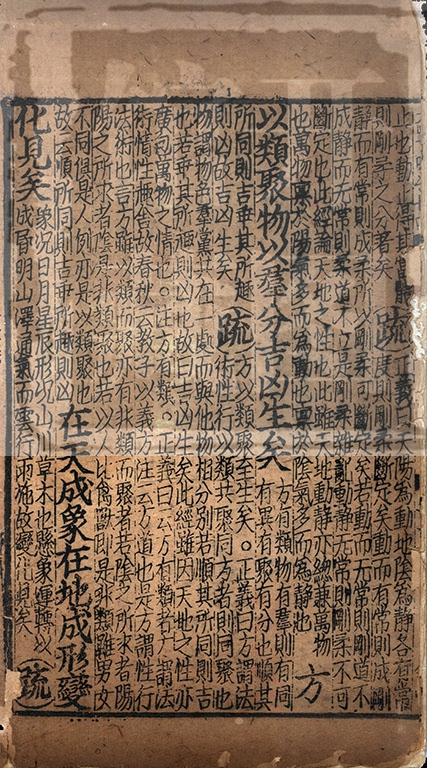 止也動止得其常體
則剛柔之分著矣
疏
正義曰天陽為動地陰為靜各有常
度則剛柔斷定矣動而有常則成剛
靜而有常則成柔所以剛柔可斷定矣若動而无常則剛道不
成靜而无常則柔道不立是剛柔雜亂動靜无常則剛柔不可
斷定也此經論天地之性也此雖天地動靜亦總兼萬物
也萬物稟於陽氣多而為動也稟於陰氣多而為靜也
方
以類聚物以羣分吉凶生矣
方有類物有羣則有同
有異有聚有分也順其
所同則吉乖其所趣
則凶故吉凶生矣
疏
方以類聚至生矣。正義曰方謂法
術性行以類共聚同方者則同聚也
物謂物色羣黨共在一處而與他物相分別若順其所同則吉
也若乖其所趣則凶也故曰吉凶生矣此經雖因天地之性亦
廣包萬物之情也。注方有類。正義曰云方有類者方謂法
術情性趣舍故春秋云教子以義方注云方道也是方謂性行
法術也言方雖以類而聚亦有非類而聚者若陰之所求者陽
陽之所求者陰是非類聚也若以人比禽獸即是非類雖男女
不同俱是人例亦是以類聚也
故云順所同則吉乖所趣則凶
在天成象在地成形變
化見矣
象況日月星辰形況山川草木也懸象運轉以
成昏明山澤通氣而雲行雨施故變化見矣
疏